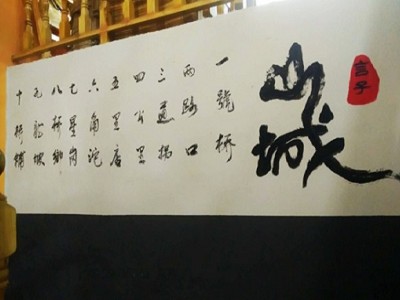 言子
山城
一號桥
两路口
三道拐
四公里
五里店
六角沱
七星岗
八桥
九龙坡
十桥铺